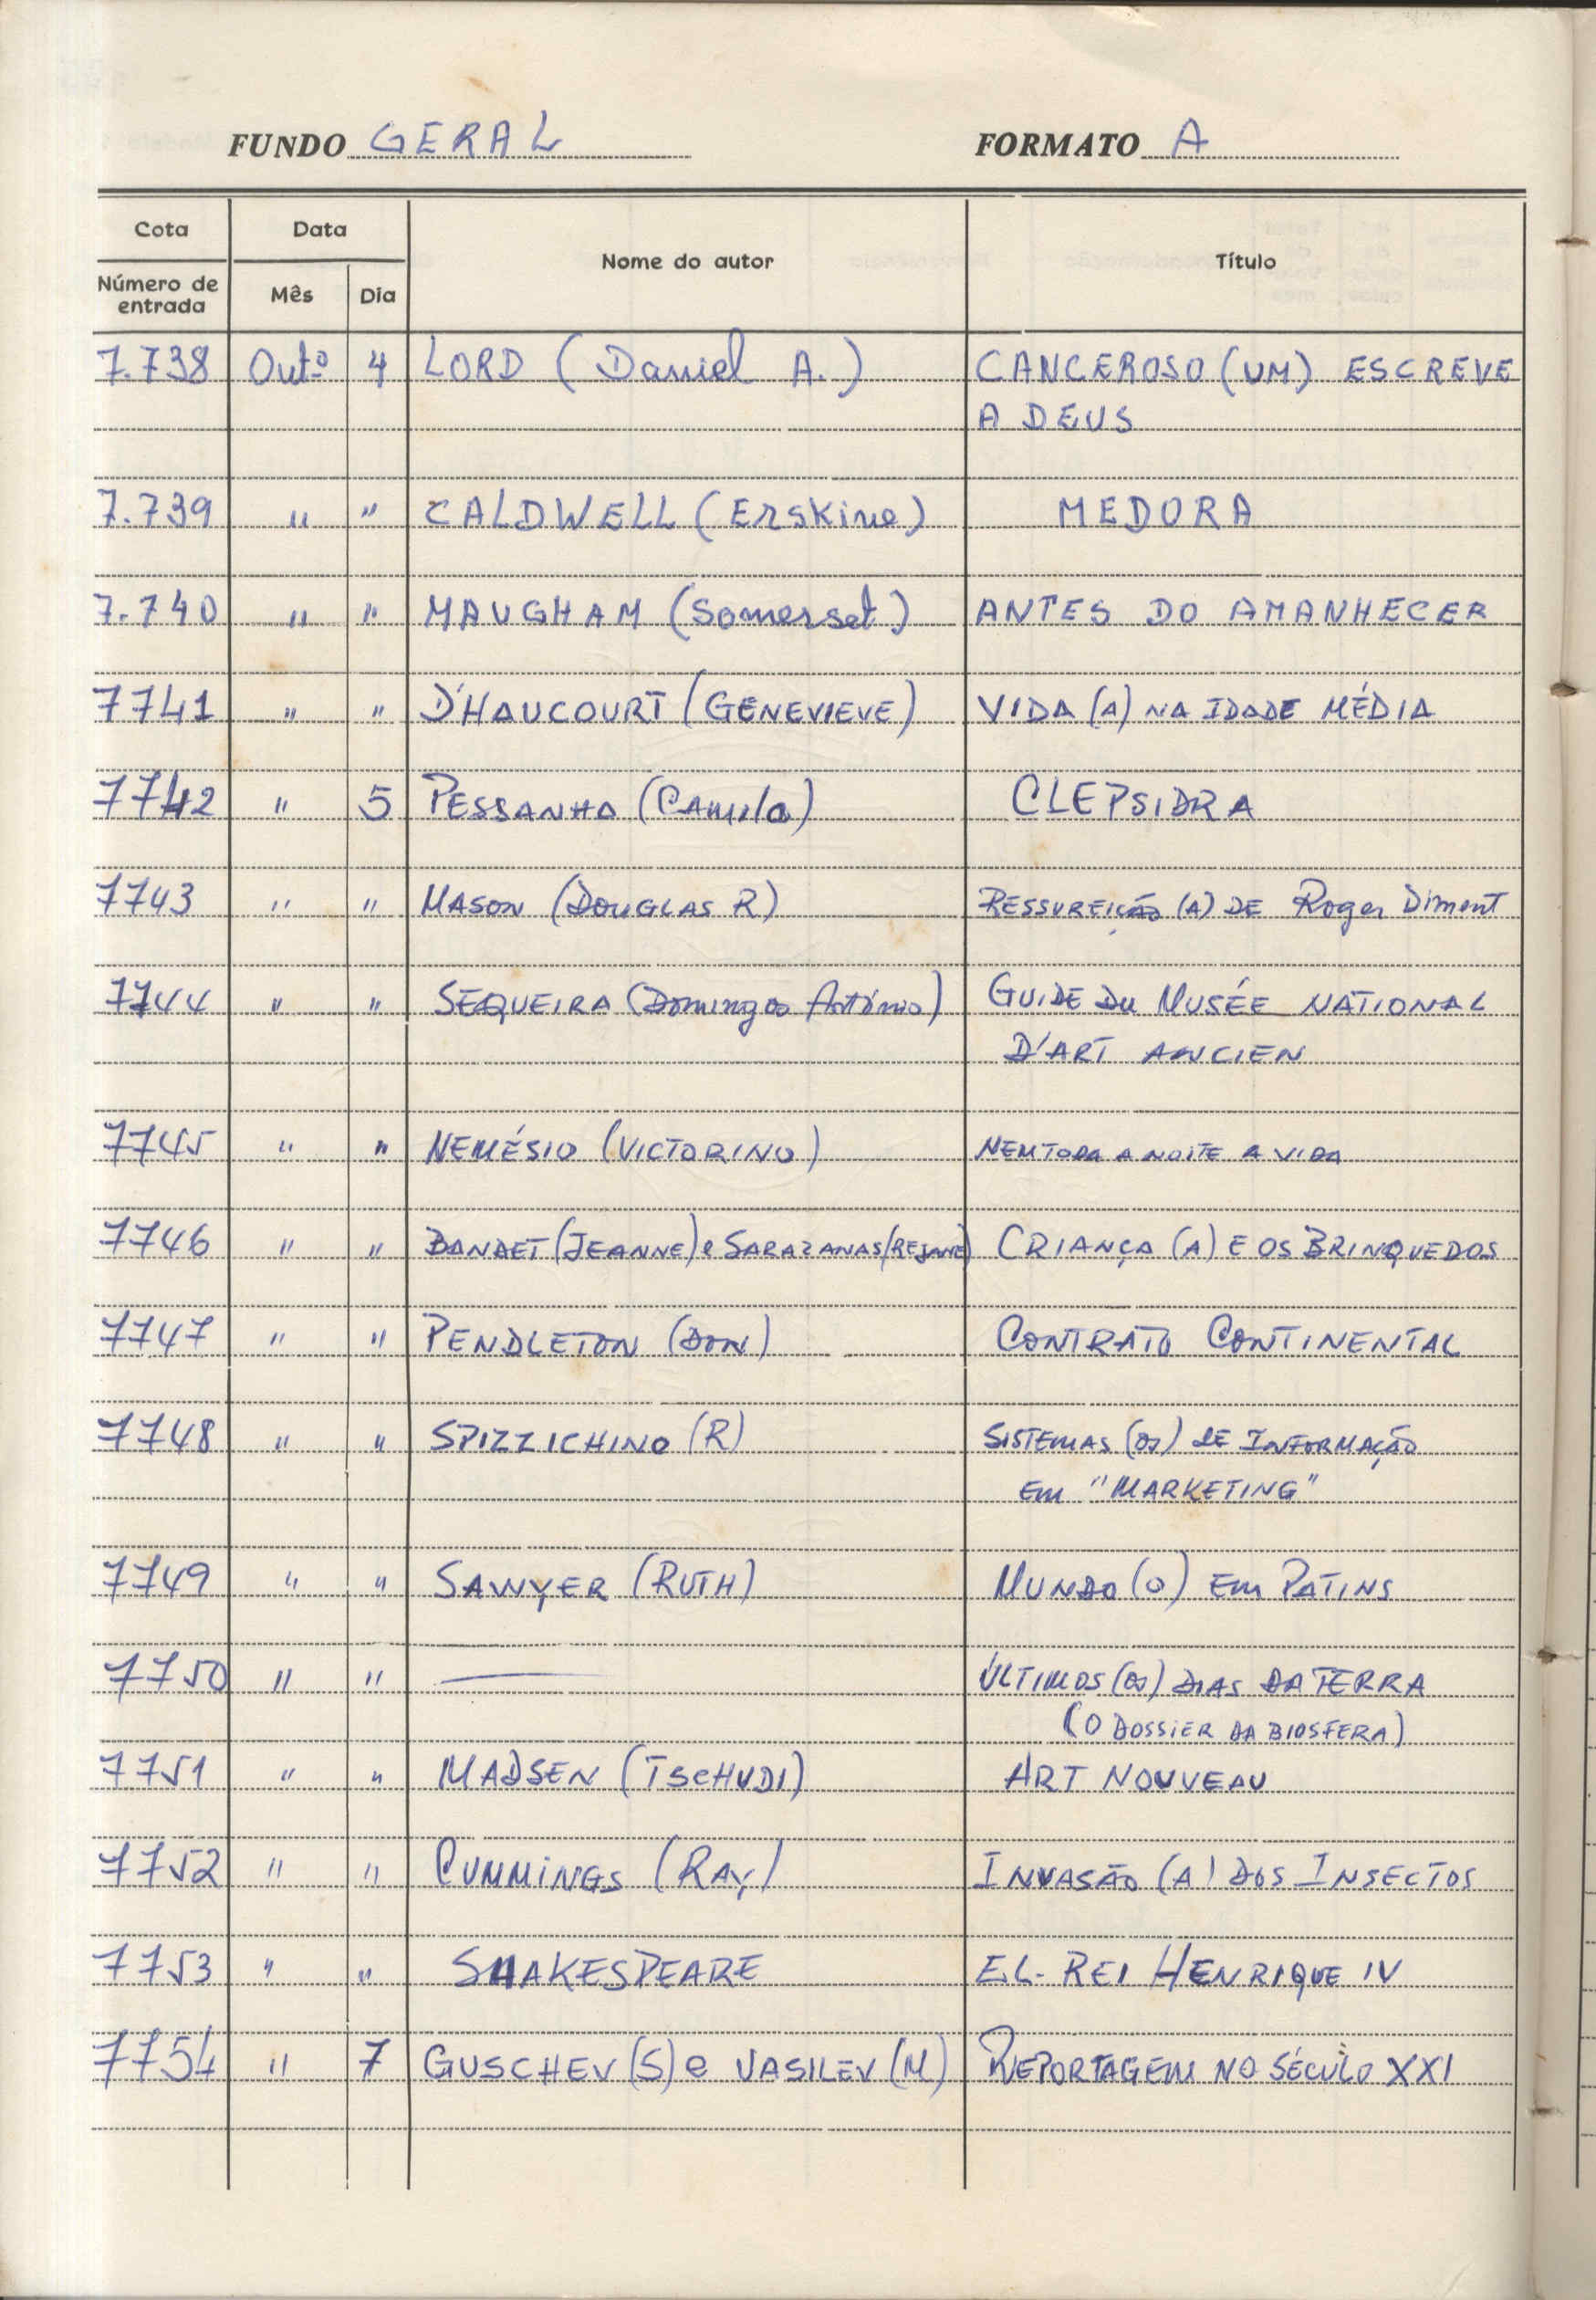 FUNDO GERAL FORMATO A
Cota Data Nome do autor Título
Número de entrada Mês Dia
7.738 Outº 4 LORD (Daniel A.) CANCEROSO (UM) ESCREVE
A DEUS
7.739 " " CALDWELL (Erskine) MEDORA
7.740 " " MAUGHAM (Somerset) ANTES DO AMANHECER
7741 " " D'HAUCOURT (GENEVIEVE) VIDA (A) NA IDADE MÉDIA
7742 " 5 PESSANHA (CAMILO) CLEPSIDRA
7743 " " MASON (DOUGLAS R) RESSUREIÇÃO (A) DE Roger Diment
7744 " " SEQUEIRA (Domingos António) GUIDE DU MUSÉE NATIONAL
D'ART ANCIEN
7745 " " NEMÉSIO (VICTORINO) NEM TODA A NOITE A VIDA
7746 " " BANDET (JEANNE) e SARAZANAS (REJANE) CRIANÇA (A) E OS BRINQUEDOS
7747 " " PENDLETON (DON) CONTRATO CONTINENTAL
7748 " " SPIZZICHINO (R) SISTEMAS (OS) DE INFORMAÇÃO
EM "MARKETING"
7749 " " SAWYER (RUTH) MUNDO (O) EM PATINS
7750 " " — ÚLTIMOS (OS) DIAS DA TERRA
(O DOSSIER DA BIOSFERA)
7751 " " MADSEN (TSCHUDI) ART NOUVEAU
7752 " " CUMMINGS (RAY) INVASÃO (A) DOS INSECTOS
7753 " " SHAKESPEARE EL-REI HENRIQUE IV
7754 " 7 GUSCHEV (S) e VASILEV (M) REPORTAGEM NO SÉCULO XXI